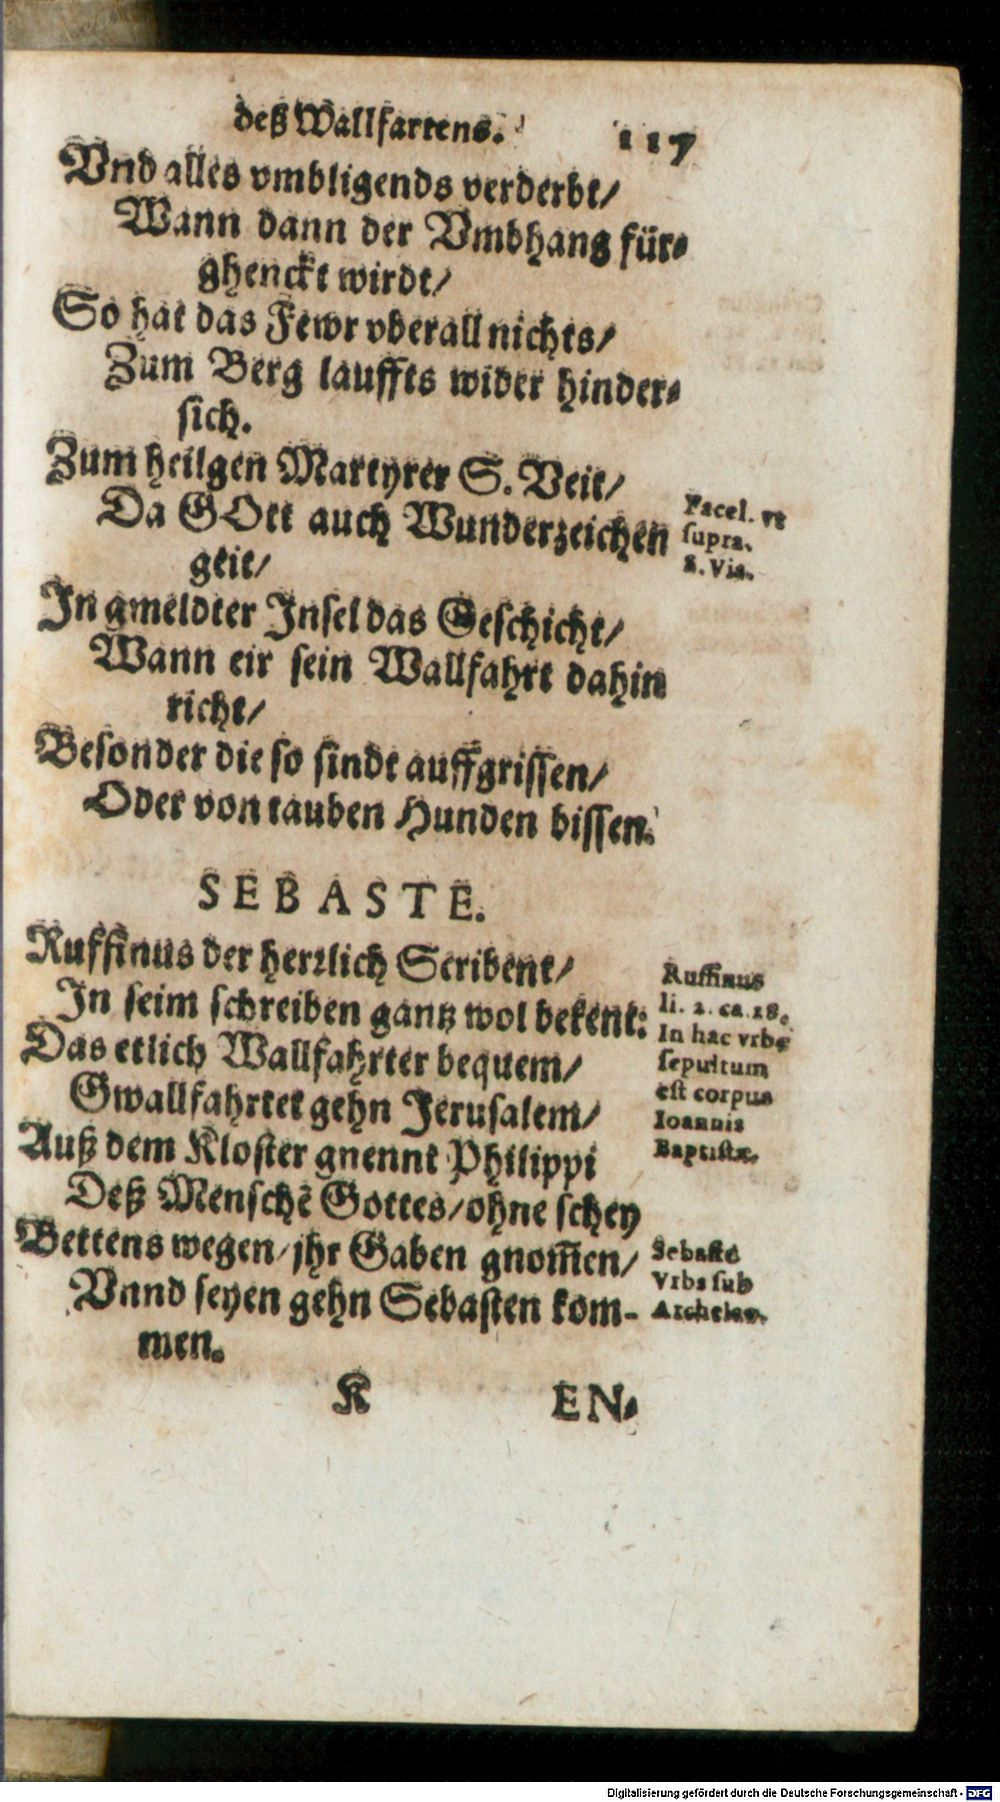 deß Wallfartens. 117
Vnd alles vmbligends verderbt/
Wann dann der Vmbhang für-
ghenckt wirdt/
So hat das Fewr vberall nichts/
Zum Berg lauffts wider hinder-
sich.
Zum heilgen Martyrer S. Veit/
Da GOtt auch Wunderzeichen
geit/
In gmeldter Insel das Geschicht/
Wann eir sein Wallfahrt dahin
richt/
Besonder die so sindt auffgrissen/
Oder von tauben Hunden bissen.
Facel. vt
supra.
S. Vis.
SEBASTE.
Ruffinus der herrlich Scribent/
In seim schreiben gantz wol bekent:
Das etlich Wallfahrter bequem/
Gwallfahrtet gehn Jerusalem/
Auß dem Kloster gnennt Philippi
Deß Menschē Gottes/ohne schey
Bettens wegen/jhr Gaben gnom̄en/
Vnnd seyen gehn Sebasten kom-
men.
Ruffinus
li. 2. ca. 28.
In hac vrbe
sepultum
est corpus
Ioannis
Baptistæ.
Sebaste
Vrbs sub
Archelao.
K EN-
Digitalisierung gefördert durch die Deutsche Forschungsgemeinschaft - DFG